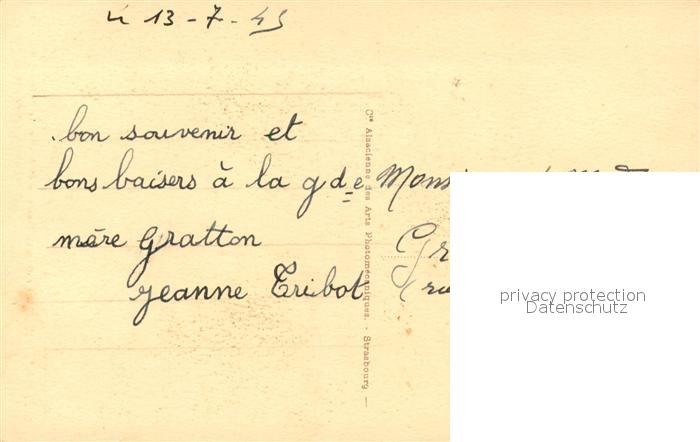 le 13-7-45
bon souvenir et
bons baisers à la gde
mère Gratton
Jeanne Tribot
Cie Alsacienne des Arts Photomécaniques. - Strasbourg —
privacy protection
Datenschutz